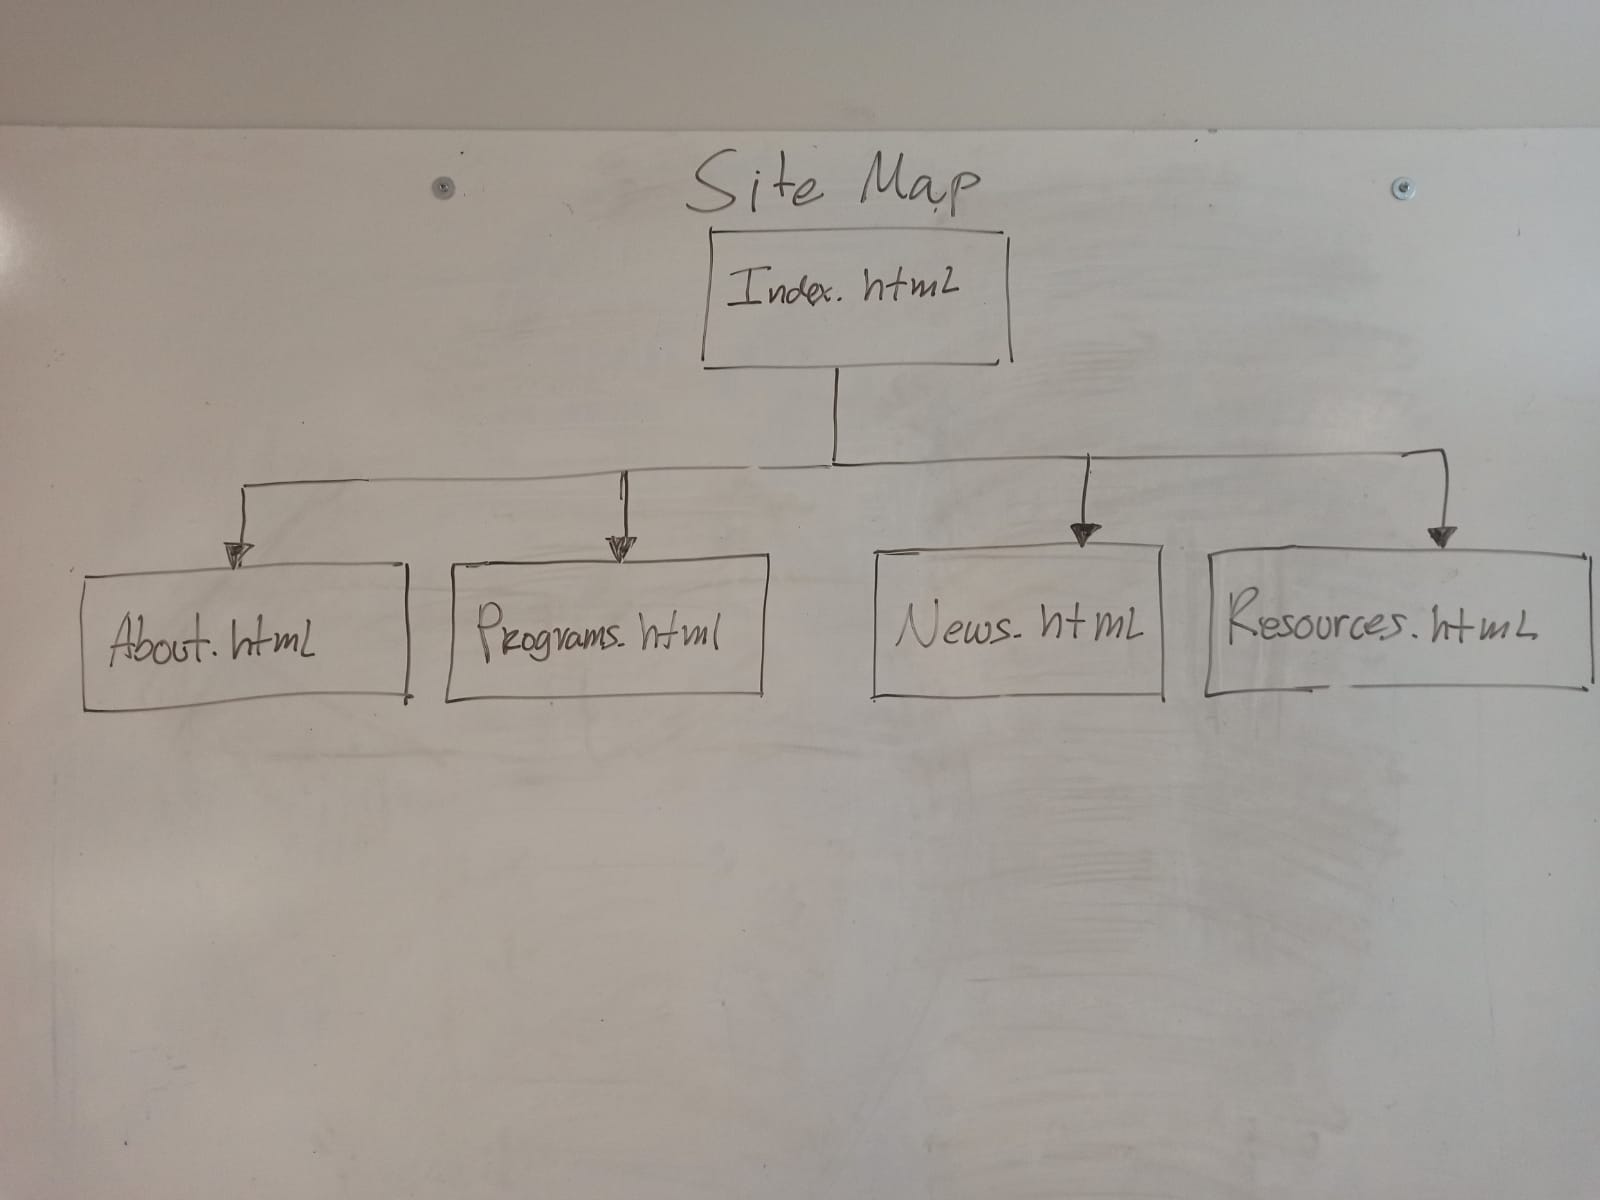 Site Map
Index.html
About.html
Programs.html
News.html
Resources.html